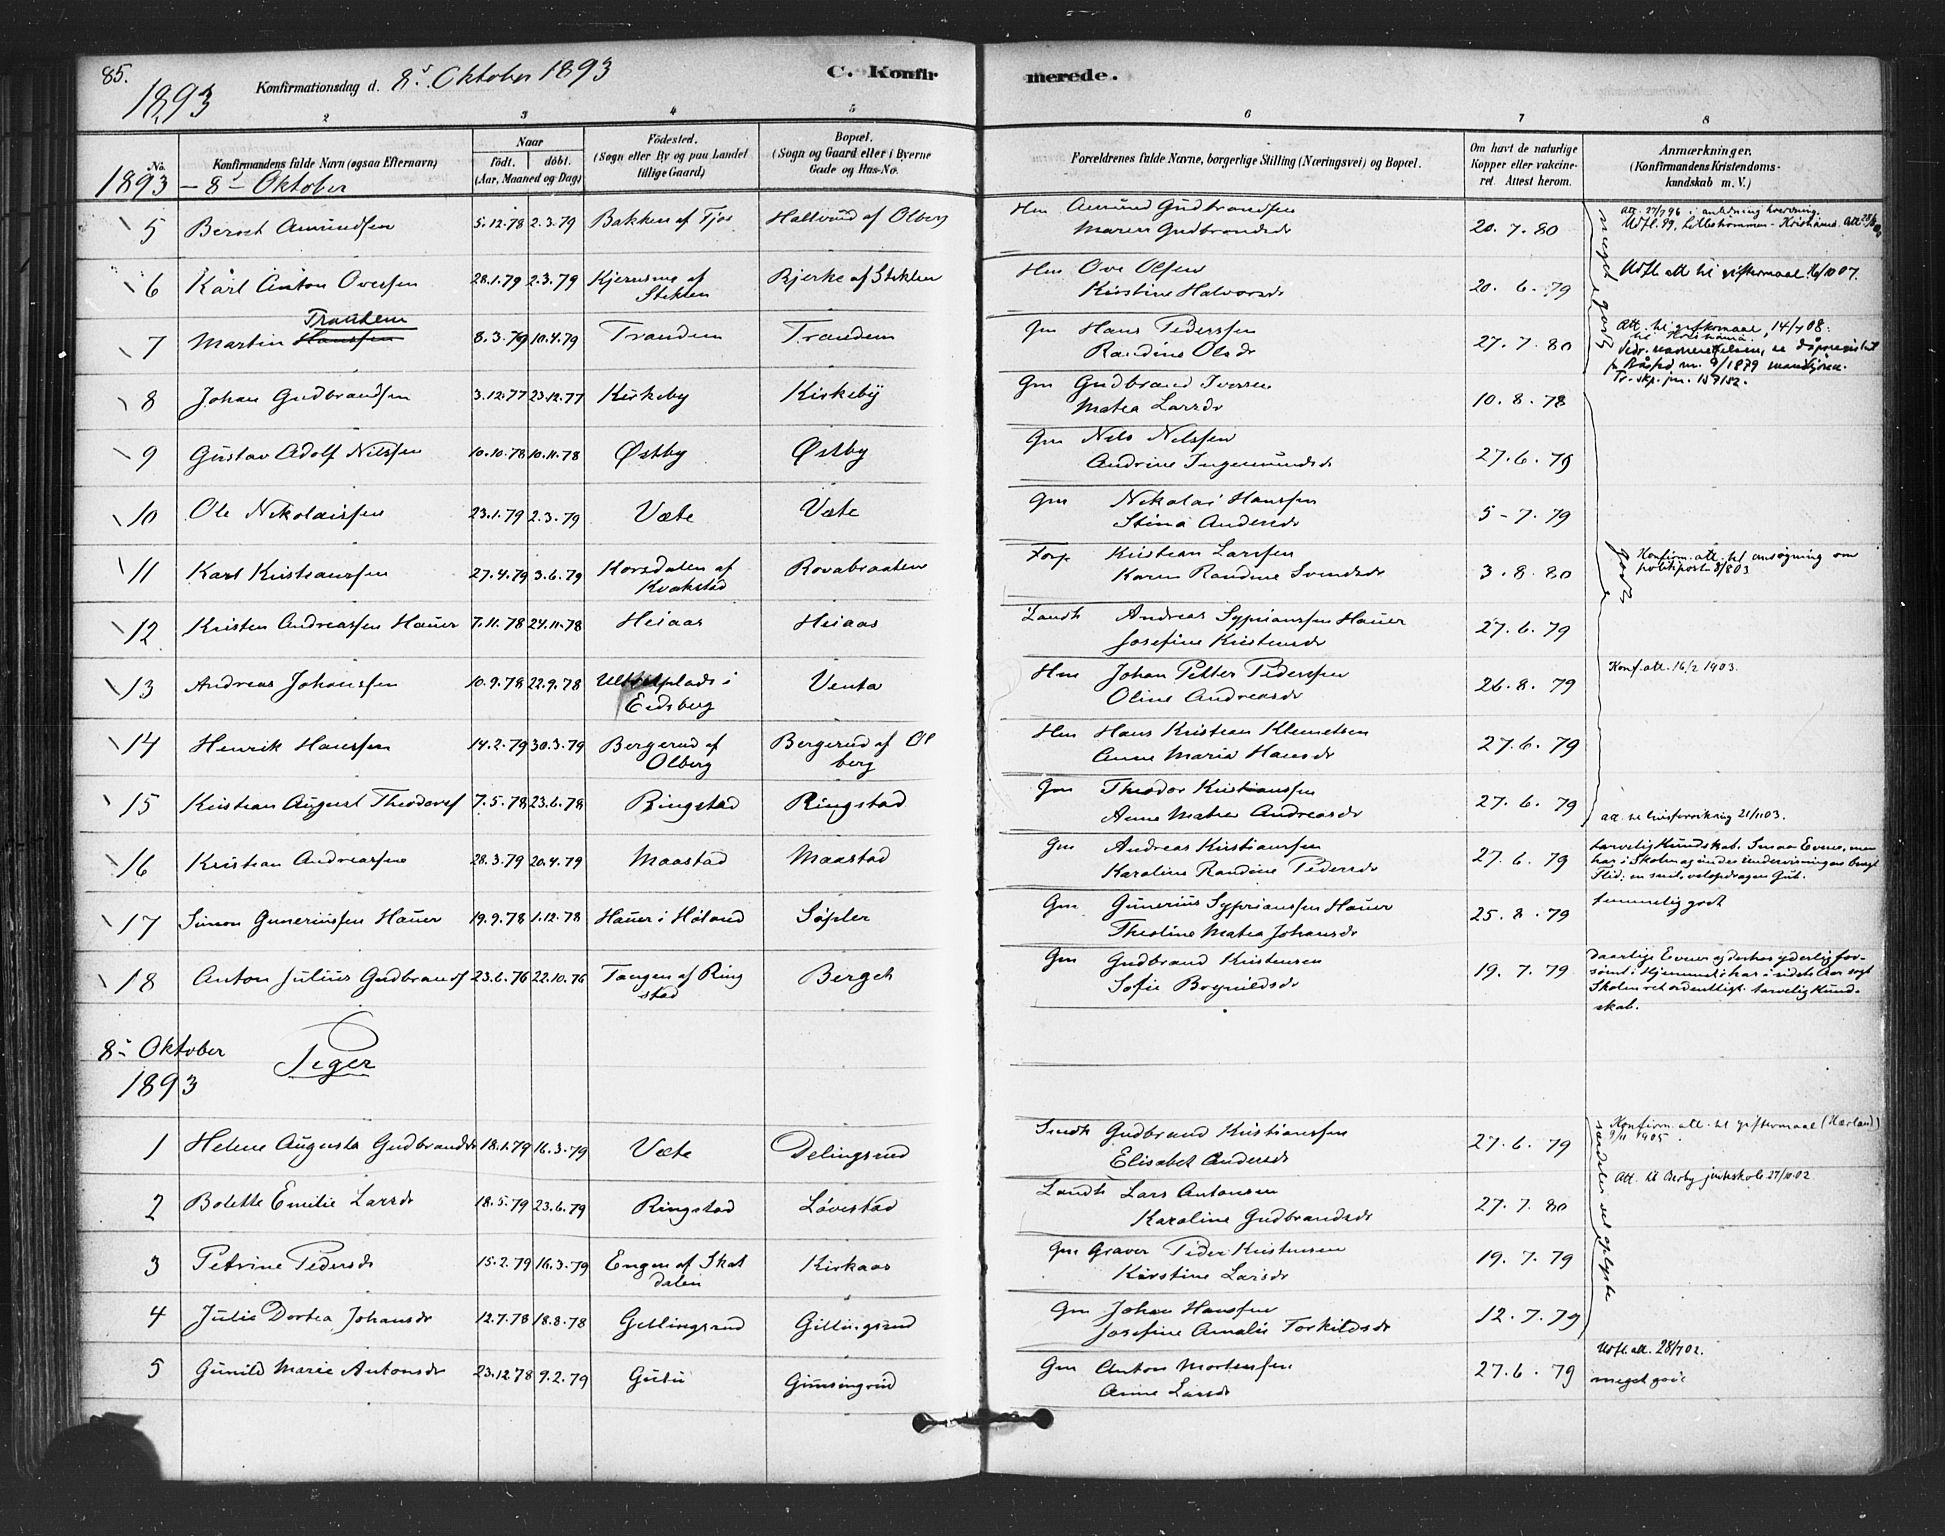 85.
1893
Konfirmationsdag d. 8s Oktober 1893
C. Konfirmerede.
2 3 4 5 6 7 8
No.
Konfirmandens fulde Navn (ogsaa Efternavn)
Naar
födt. döbt.
(Aar, Maaned og Dag)
Födested.
(Sogn eller By og paa Landet
tillige Gaard)
Bopæl.
(Sogn og Gaard eller i Byerne
Gade og Hus-No.
Forældrenes fulde Navne, borgerlige Stilling (Næringsvei) og Bopæl.
Om havt de naturlige
Kopper eller vakcine-
ret. Attest herom.
Anmærkninger.
(Konfirmandens Kristendoms-
kundskab m. V.)
1893 – 8 – Oktober
5 Bernt Amundsen 5.12.78 2.3.79 Bakken af Tjos Hallerud af Olberg Hm Amund Gudbrandsen 20.7.80
Maren Gudbrandsdr
6 Karl Anton Ovesen 28.1.79 2.3.79 Kjernsmo af Bjerke af Stikklen Hm Ove Olsen 20.6.79 Udfl. att til giftermaal 16/10 07.
Kirstine Halvorsdr
Trandem
7 Martin Hanssen 8.3.79 10.4.79 Trandem Trandem Gm Hans Pederssen 27.7.80 Att. til giftermaal 14/7 08.
Randine Olsdr
8 Johan Gudbrandsen 3.12.77 23.12.77 Kirkeby Kirkeby Gm Gudbrand Iversen 10.8.78
Matea Larsdr
9 Gustav Adolf Nilssen 10.10.78 10.11.78 Østby Østby Gm Nils Nilssen 27.6.79
Andrine Ingemundsdr
10 Ole Nikolaissen 23.1.79 2.3.79 Væte Væte Gm Nikolai Hanssen 5-7.79
Stina Andersdr
11 Karl Kristianssen 27.4.79 3.6.79 Korsdalen af Rovabraaten Forp Kristian Larssen 3.8.80 Konfirm. att. til ansøgning om
Kvakstad Karen Randine Svendsdr
12 Kristen Andreassen Hauer 7.11.78 24.11.78 Heiaas Heiaas Landh Andreas Syprianssen Hauer 27.6.79
Josefine Kristensdr
13 Andreas Johanssen 10.9.78 22.9.78 i Venta Hm Johan Petter Pederssen 26.8.79 Konf. att. 16/2 1903.
Eidsberg Oline Andreasdr
14 Henrik Hanssen 14.2.79 30.3.79 Bergerud af Bergerud af Ol Hm Hans Kristian Klemetsen 27.6.79
Olberg berg Anne Maria Hansdr
15 Kristian August Theodorsf 7.5.78 23.6.78 Ringstad Ringstad Gm Theodor Kristianssen 27.6.79 att. til livsforsikring 21/11 03.
Anne Matea Andreasdr
16 Kristian Andreassen 28.3.79 20.4.79 Maastad Maastad Gm Andreas Kristianssen 27.6.79 tarvelig Kundskab. Smaa Evner, men
Karoline Randine Pedersdr har i Skolen og under undervisningen brugt
Flid; en snil, velopdragen Gut.
17 Simon Gunerinssen Hauer 19.9.78 1.12.78 Hauer i Høland Søpler Gm Gunerius Syprianssen Hauer 25.8.79 temmelig godt
Theoline Matea Johansdr
18 Anton Julius Gudbrandsf 23.6.76 22.10.76 Tangen af Ring Berget Gm Gudbrand Kristensen 19.7.79 Daarlige Evner og derhos yderlig for-
stad Sofie Bognildsdr sømt i Hjemmet; har i sidste Aar søgt
Skolen ret ordentligt. tarvelig Kund-
skab.
meget godt
godt
8– Oktober
1893
Piger
1 Helene Augusta Gudbrandsdr 18.1.79 16.3.79 Væte Delingsrud Smdh Gudbrand Kristianssen 27.6.79 Konfirm. att. til giftermaal (Hærland)
Elisabet Andersdr 9/11 1905.
2 Bolette Emilie Larsdr 18.5.79 23.6.79 Ringstad Løvestad Landh Lars Antonsen 27.7.80 Att. til Berby jenteskole 27/10 02
Karoline Gudbrandsdr
3 Petrine Pedersdr 15.2.79 16.3.79 Engen af Skot Kirkaas Gm Graver Peder Kristensen 19.7.79
dalen Kirstine Larsdr
4 Julie Dortea Johansdr 12.7.78 18.8.78 Gellingsrud Gellingsrud Gm Johan Hanssen 12.7.79
Josefine Amalie Torkildsdr
særdeles vel oplyste
Udfl. att. 28/7 02.
5 Gunild Marie Antonsdr 23.12.78 9.2.79 Gutu Gunsingrud Gm Anton Mortenssen 27.6.79 meget god
Anne Larsdr